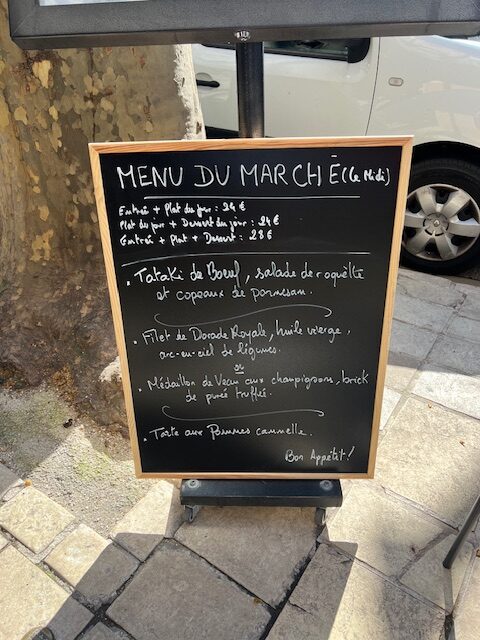 MENU DU MARCHÉ (Le Midi)
Entrée + Plat du jour : 24 €
Plat du jour + Dessert du jour : 24 €
Entrée + Plat + Dessert : 28 €
. Tataki de Bœuf, salade de roquette
et copeaux de parmesan.
. Filet de Dorade Royale, huile vierge,
arc-en-ciel de légumes.
ou
. Médaillon de Veau aux champignons, brick
de purée truffée.
. Tarte aux Pommes cannelle.
Bon Appétit!